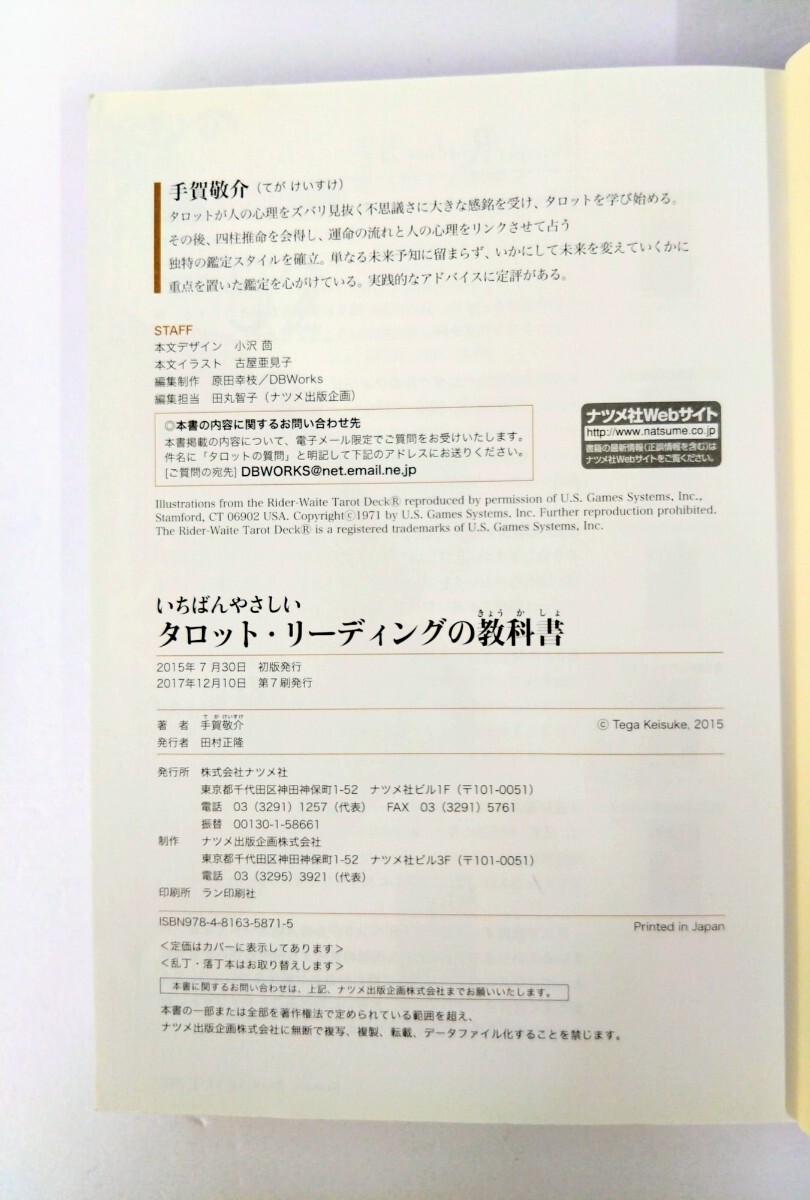 手賀敬介（てが けいすけ）
タロットが人の心理をズバリ見抜く不思議さに大きな感銘を受け、タロットを学び始める。
その後、四柱推命を会得し、運命の流れと人の心理をリンクさせて占う
独特の鑑定スタイルを確立。単なる未来予知に留まらず、いかにして未来を変えていくかに
重点を置いた鑑定を心がけている。実践的なアドバイスに定評がある。
STAFF
本文デザイン　小沢 茴
本文イラスト　古屋亜見子
編集制作　原田幸枝／DBWorks
編集担当　田丸智子（ナツメ出版企画）
◎本書の内容に関するお問い合わせ先
本書掲載の内容について、電子メール限定でご質問をお受けいたします。
件名に「タロットの質問」と明記して下記のアドレスにお送りください。
[ご質問の宛先] DBWORKS@net.email.ne.jp
ナツメ社Webサイト
http://www.natsume.co.jp
書籍の最新情報（正誤情報を含む）は
ナツメ社Webサイトをご覧ください。
Illustrations from the Rider-Waite Tarot Deck® reproduced by permission of U.S. Games Systems, Inc.,
Stamford, CT 06902 USA. Copyright©1971 by U.S. Games Systems, Inc. Further reproduction prohibited.
The Rider-Waite Tarot Deck® is a registered trademarks of U.S. Games Systems, Inc.
いちばんやさしい
きょう か しょ
タロット・リーディングの教科書
2015年 7 月30日　初版発行
2017年12月10日　第７刷発行
て が けいすけ
著　者　手賀敬介
© Tega Keisuke, 2015
発行者　田村正隆
発行所　株式会社ナツメ社
東京都千代田区神田神保町1-52　ナツメ社ビル1F（〒101-0051）
電話　03（3291）1257（代表）　FAX　03（3291）5761
振替　00130-1-58661
制作　ナツメ出版企画株式会社
東京都千代田区神田神保町1-52　ナツメ社ビル3F（〒101-0051）
電話　03（3295）3921（代表）
印刷所　ラン印刷社
ISBN978-4-8163-5871-5
Printed in Japan
＜定価はカバーに表示してあります＞
＜乱丁・落丁本はお取り替えします＞
本書に関するお問い合わせは、上記、ナツメ出版企画株式会社までお願いいたします。
本書の一部または全部を著作権法で定められている範囲を超え、
ナツメ出版企画株式会社に無断で複写、複製、転載、データファイル化することを禁じます。